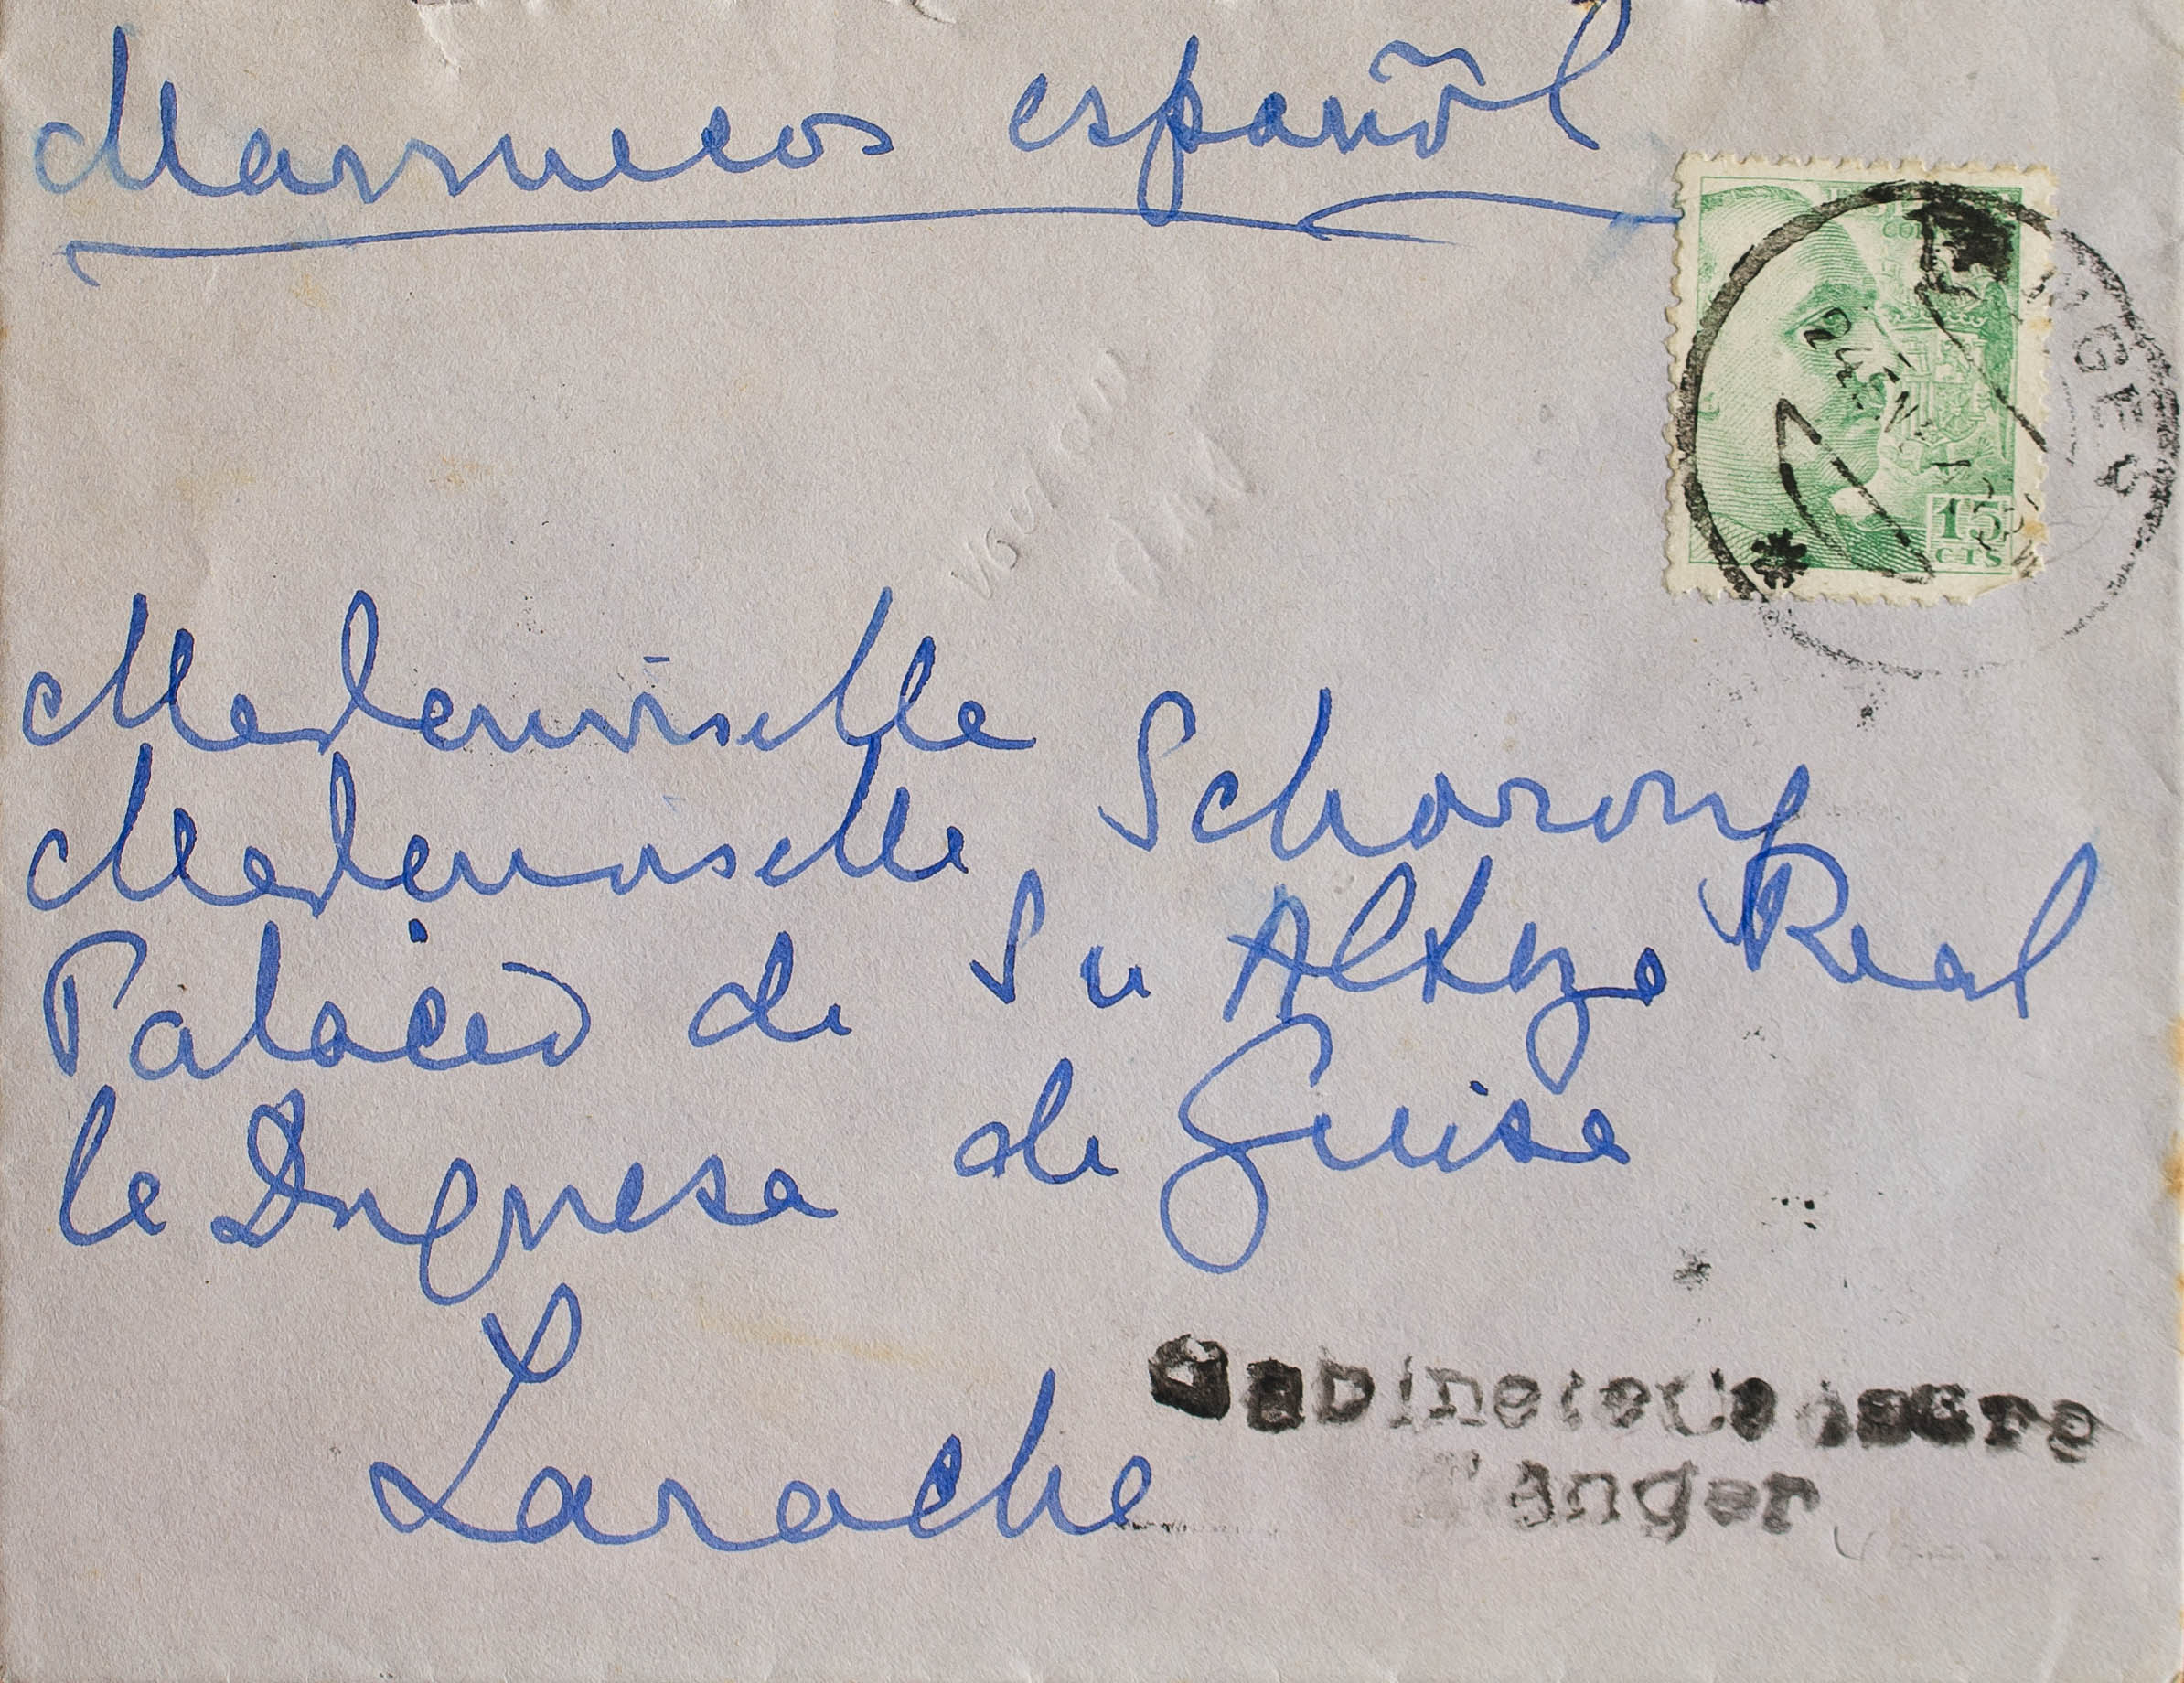 Marruecos español
15
CTS
Mademoiselle
Mademoiselle
Palacio de Su Alteza Real
la Duquesa de Guisa
Larache
Gabinete Censura
Tanger